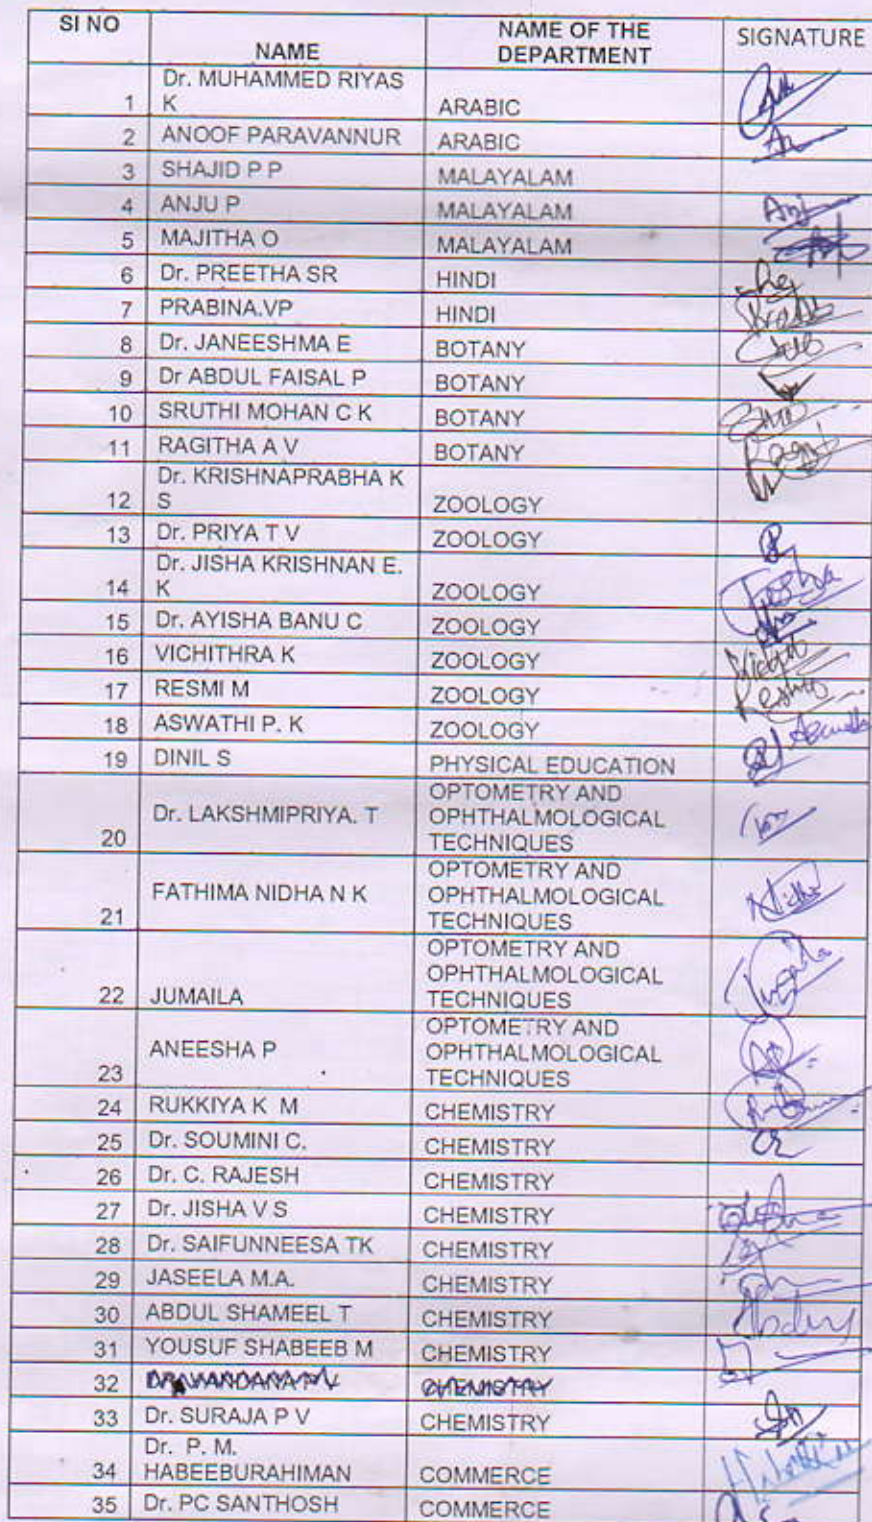 SI NO NAME NAME OF THE DEPARTMENT SIGNATURE
1 Dr. MUHAMMED RIYAS K ARABIC
2 ANOOF PARAVANNUR ARABIC
3 SHAJID P P MALAYALAM
4 ANJU P MALAYALAM
5 MAJITHA O MALAYALAM
6 Dr. PREETHA SR HINDI
7 PRABINA.VP HINDI
8 Dr. JANEESHMA E BOTANY
9 Dr ABDUL FAISAL P BOTANY
10 SRUTHI MOHAN C K BOTANY
11 RAGITHA A V BOTANY
12 Dr. KRISHNAPRABHA K S ZOOLOGY
13 Dr. PRIYA T V ZOOLOGY
14 Dr. JISHA KRISHNAN E. K ZOOLOGY
15 Dr. AYISHA BANU C ZOOLOGY
16 VICHITHRA K ZOOLOGY
17 RESMI M ZOOLOGY
18 ASWATHI P. K ZOOLOGY
19 DINIL S PHYSICAL EDUCATION
20 Dr. LAKSHMIPRIYA. T OPTOMETRY AND OPHTHALMOLOGICAL TECHNIQUES
21 FATHIMA NIDHA N K OPTOMETRY AND OPHTHALMOLOGICAL TECHNIQUES
22 JUMAILA OPTOMETRY AND OPHTHALMOLOGICAL TECHNIQUES
23 ANEESHA P OPTOMETRY AND OPHTHALMOLOGICAL TECHNIQUES
24 RUKKIYA K M CHEMISTRY
25 Dr. SOUMINI C. CHEMISTRY
26 Dr. C. RAJESH CHEMISTRY
27 Dr. JISHA V S CHEMISTRY
28 Dr. SAIFUNNEESA TK CHEMISTRY
29 JASEELA M.A. CHEMISTRY
30 ABDUL SHAMEEL T CHEMISTRY
31 YOUSUF SHABEEB M CHEMISTRY
32 CHEMISTRY
33 Dr. SURAJA P V CHEMISTRY
34 Dr. P. M. HABEEBURAHIMAN COMMERCE
35 Dr. PC SANTHOSH COMMERCE